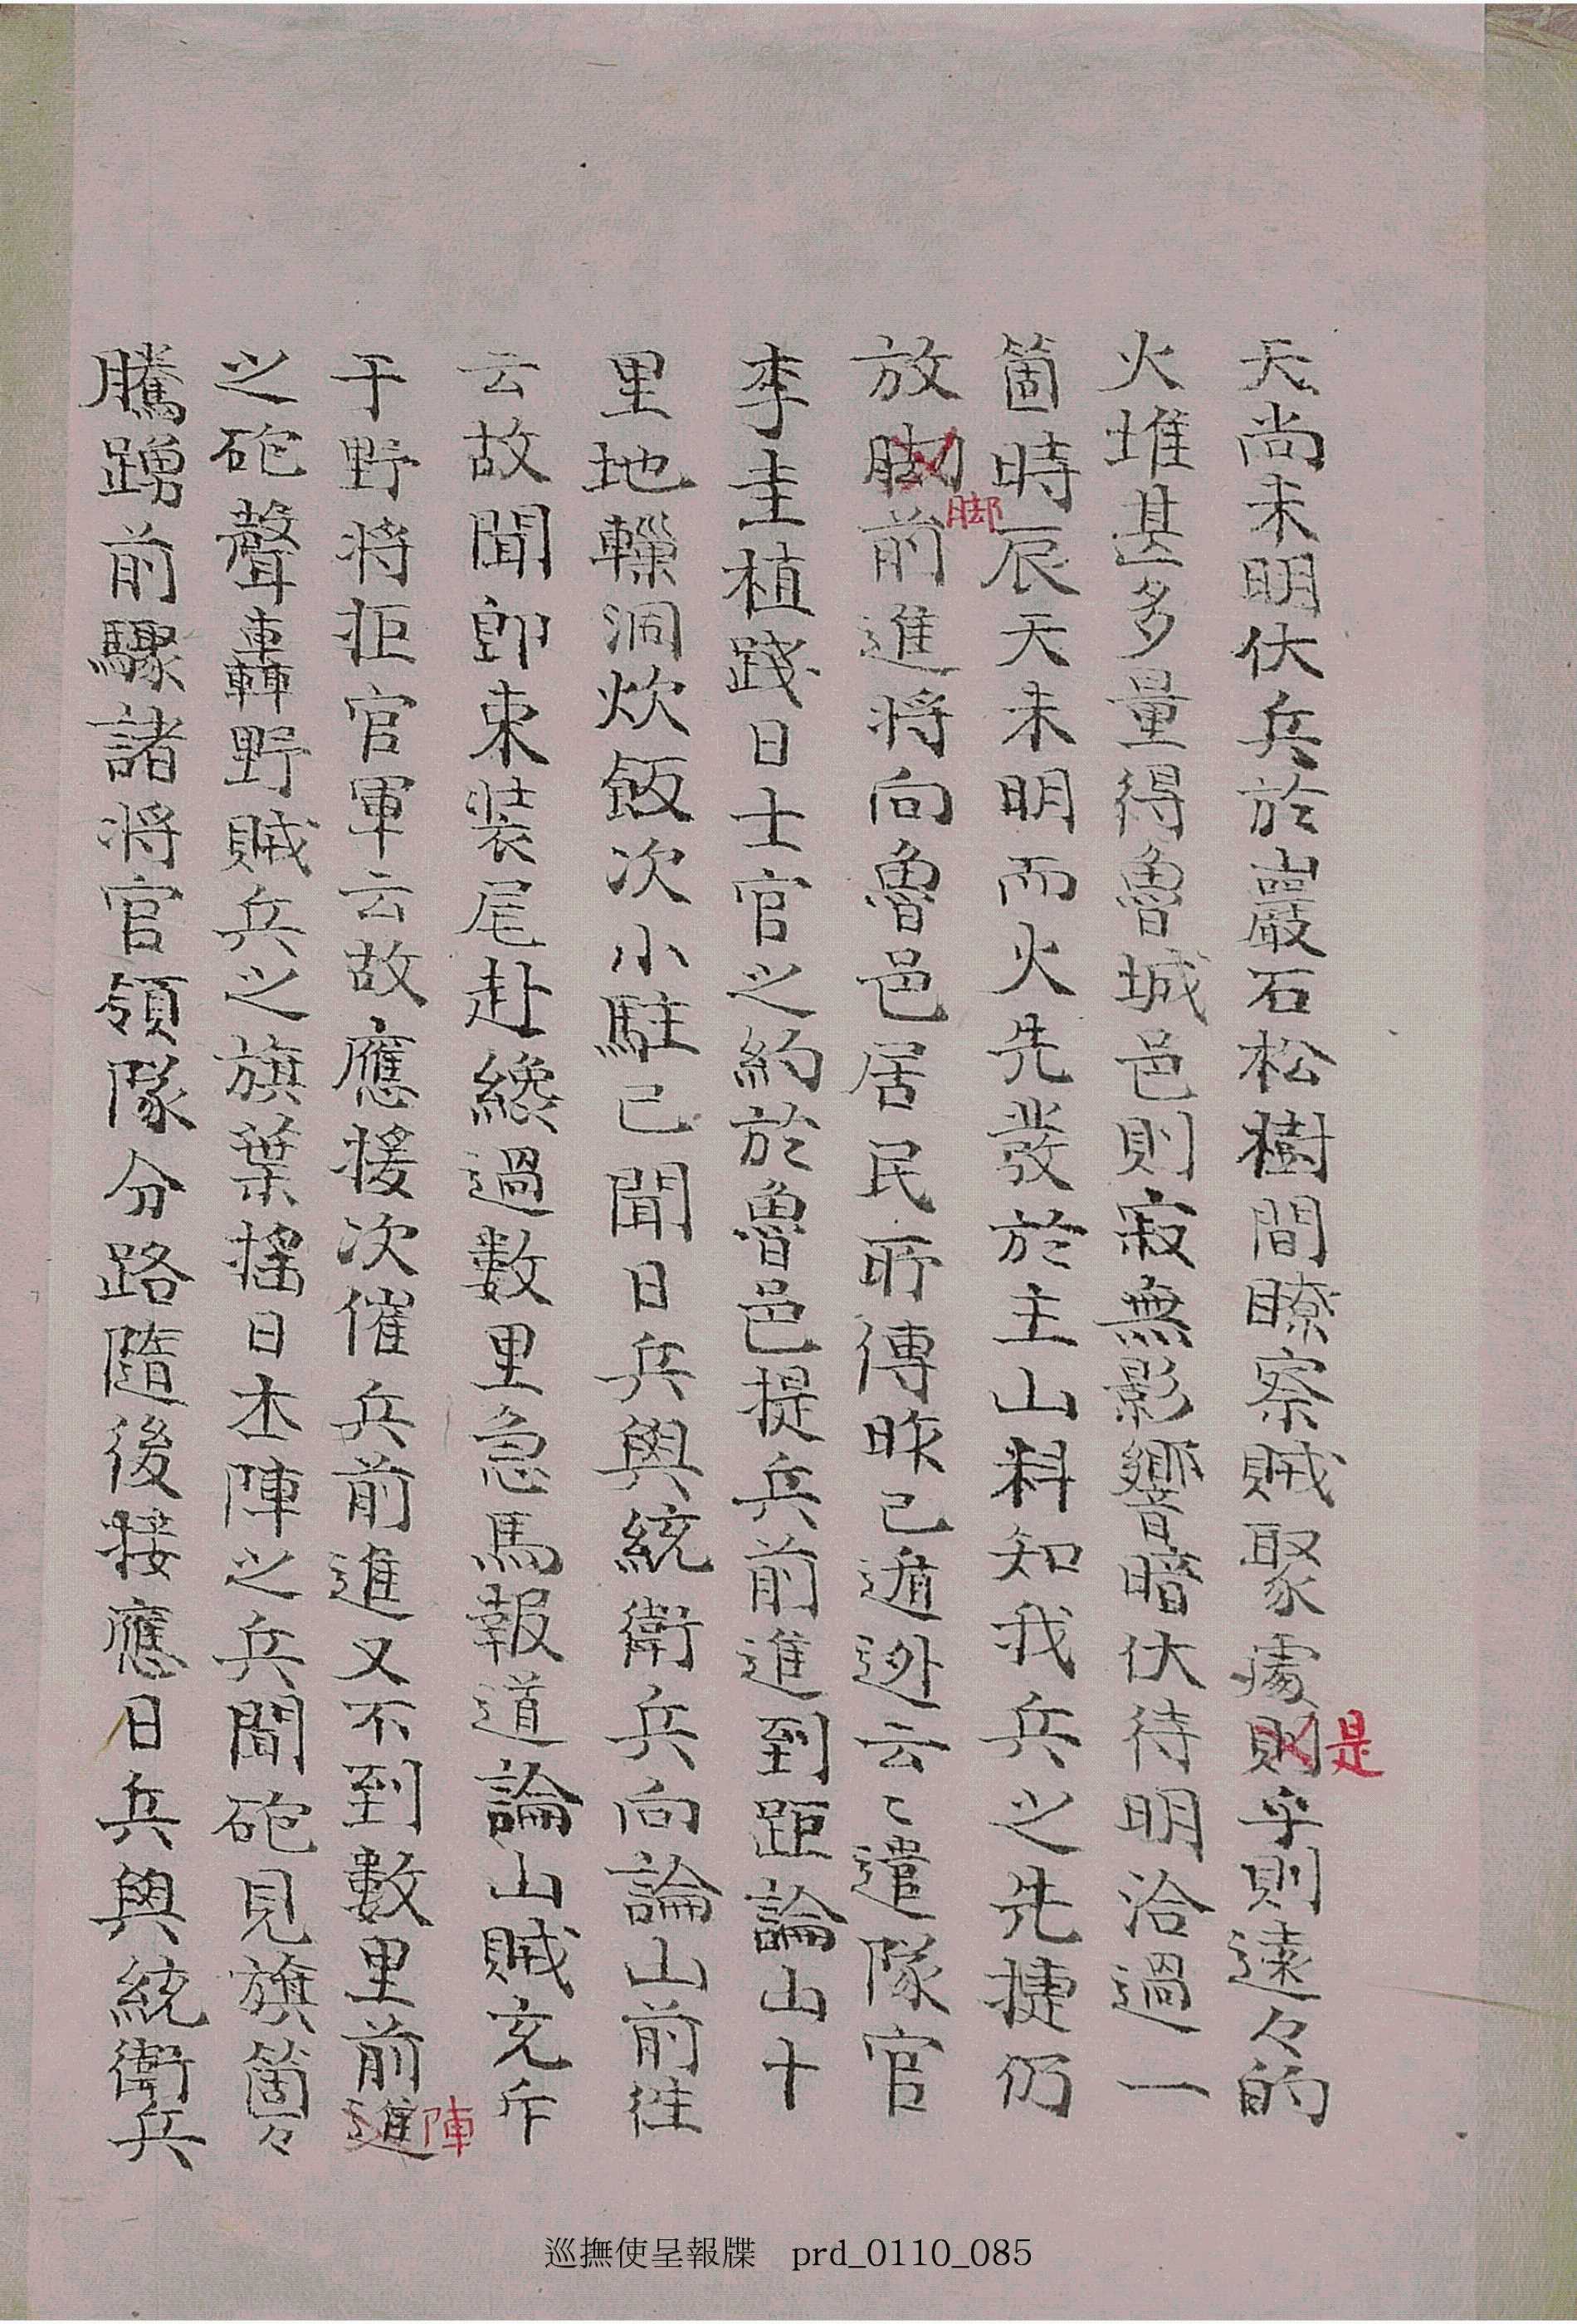 天尚未明伏兵於巖石松樹間瞭察賊聚處則是乎則遠々的
火堆甚多量得魯城邑則寂無影響暗伏待明洽過一
箇時辰天未明而火先發於主山料知我兵之先捷仍
放脚脚前進将向魯邑居民所傳昨已遁迯云〻遣隊官
李圭植踐日士官之約於魯邑提兵前進到距論山十
里地轈洞炊飯次小駐已聞日兵與統衛兵向論山前往
云故聞即束装尾赴纔過數里急馬報道論山賊充斥
于野将拒官軍云故應援次催兵前進又不到數里前進陣
之砲聲轟野賊兵之旗葉搖日本陣之兵聞砲見旗箇々
騰踴前驟諸将官領隊分路隨後接應日兵與統衛兵
巡撫使呈報牒 prd_0110_085